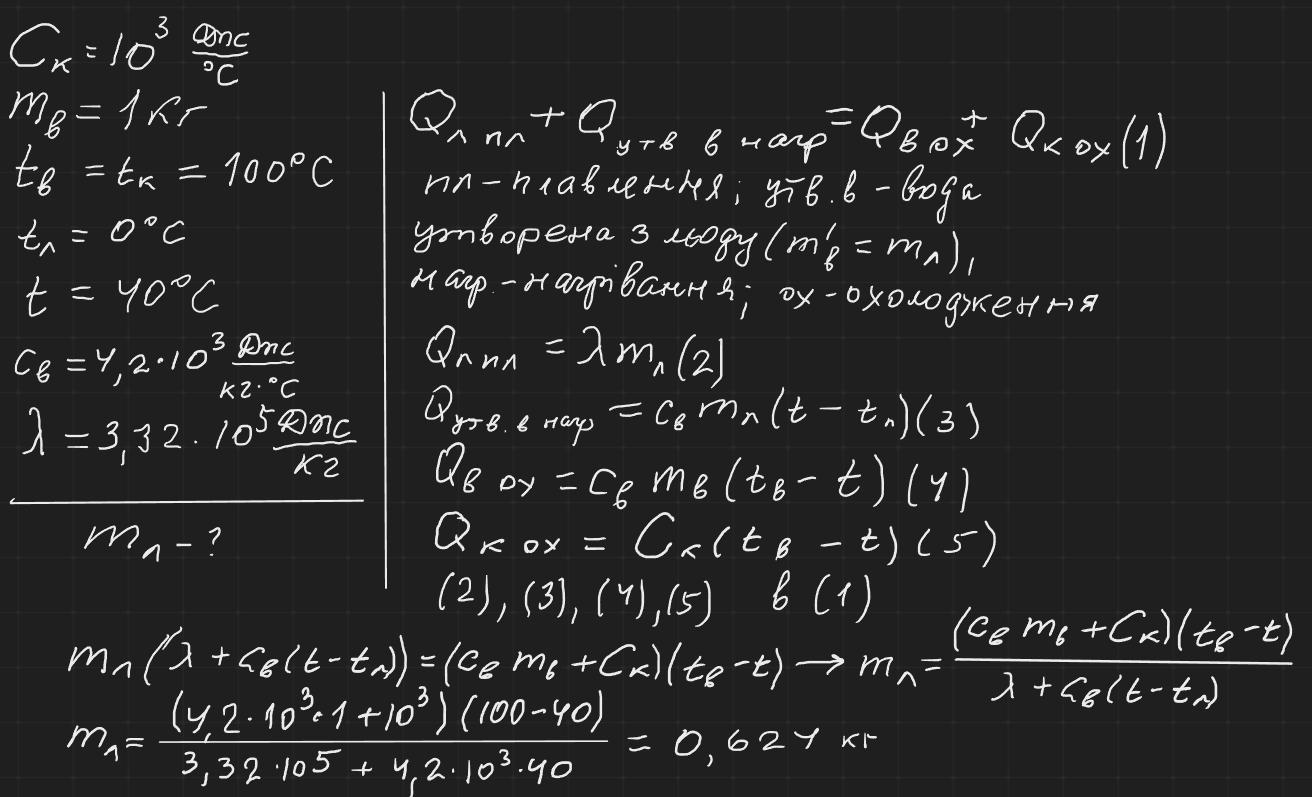 Cк = 10³ Дж/°C
mв = 1 кг
tв = tк = 100°C
tл = 0°C
t = 40°C
cв = 4,2·10³ Дж/кг·°C
λ = 3,32·10⁵ Дж/кг
mл - ?
Qл пл + Qутв в нагр = Qв ох + Qк ох (1)
пл - плавлення; утв.в - вода
утворена з льоду (m'в = mл),
нагр. - нагрівання; ох - охолодження
Qл пл = λmл (2)
Qутв. в нагр = cв mл (t - tл) (3)
Qв ох = cв mв (tв - t) (4)
Qк ох = Cк (tв - t) (5)
(2), (3), (4), (5) в (1)
mл (λ + cв(t - tл)) = (cв mв + Cк)(tв - t) → mл = (cв mв + Cк)(tв - t) / λ + cв(t - tл)
mл = (4,2·10³·1 + 10³)(100-40) / 3,32·10⁵ + 4,2·10³·40 = 0,624 кг